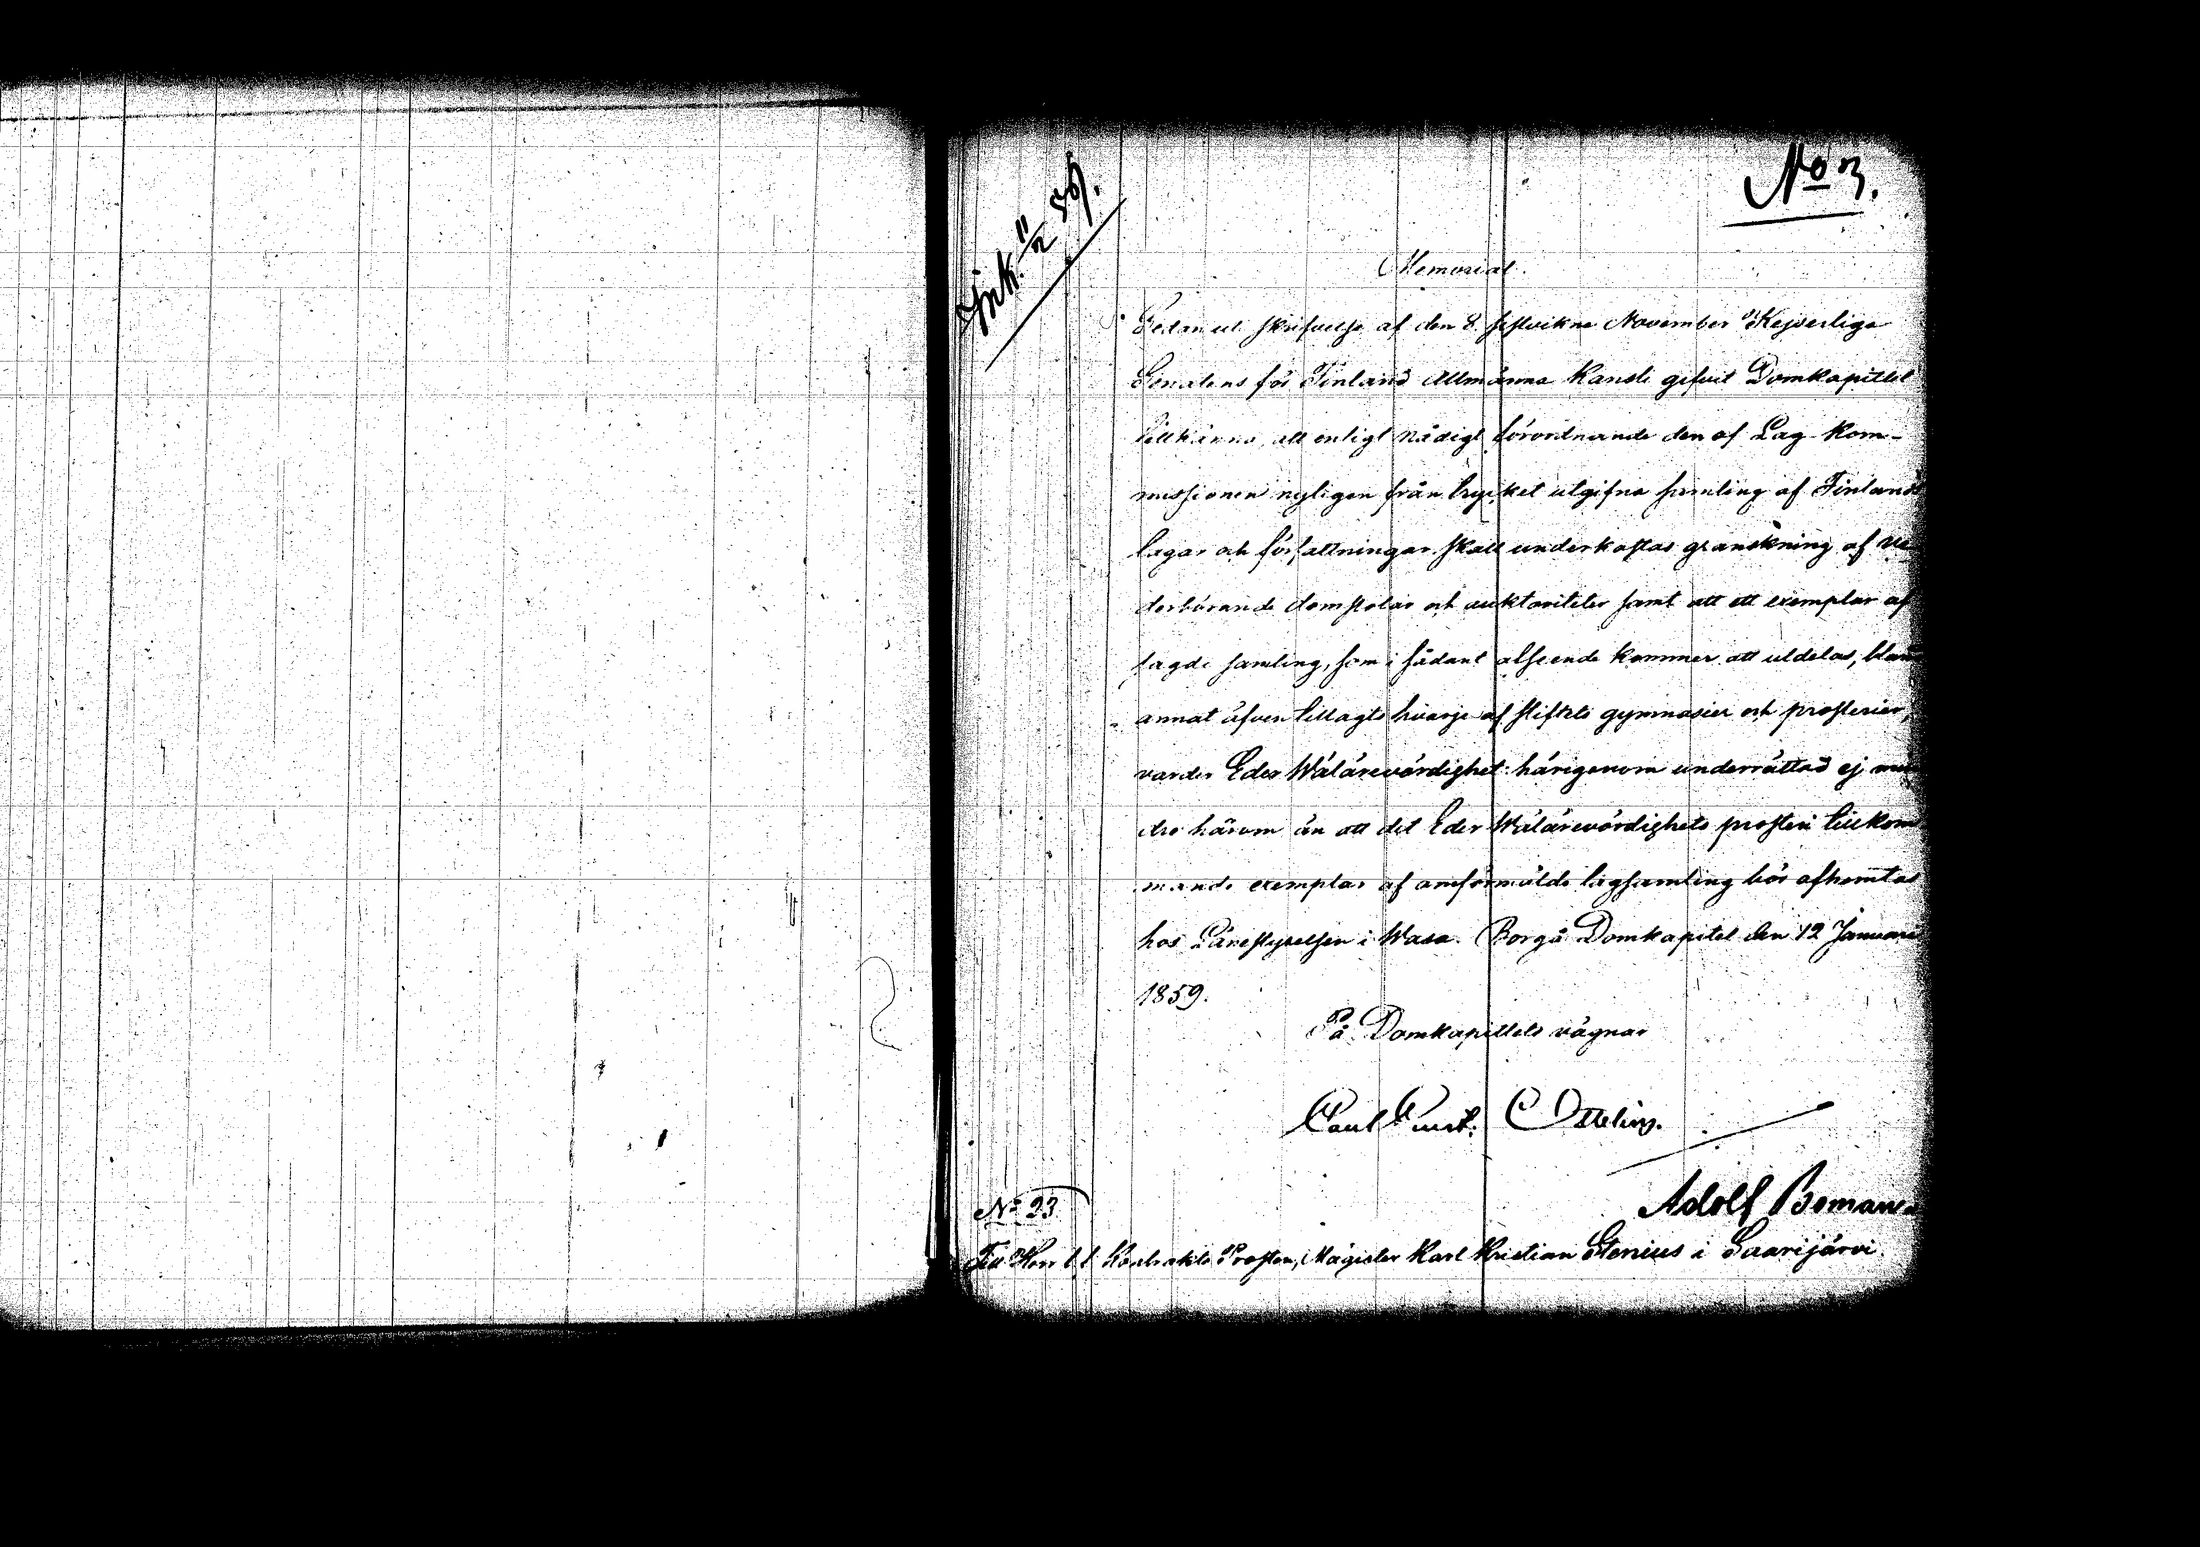 No 3.
Ink. 11/2 59.
Memorial.
Sedan uti skrifvelse af den 8 sistvikne November Kejserliga
Senatens för Finland Allmänna Kansli gifvit Domkapitlet
tillkänna, att enligt nådigt förordnande den af Lag-kom-
missionen nyligen från trycket utgifna samling af Finlands
lagar och författningar skall underkastas granskning af ve-
derbörande domstolar och auktoriteter samt att ett exemplar af
sagde samling, som i sådant afseende kommer att utdelas, bland
annat äfven tillagts hvarje af stiftets gymnasier och prosterier,
varder Eder Wälärevördighet härigenom underrättad ej min-
dre härom än att det Eder Wälärevördighets prosteri tillkom-
mande exemplar af omförmälda lagsamling bör afhemtas
hos Länestyrelsen i Wasa. Borgå Domkapitel den 12 Januari
1859.
På Domkapitlets vägnar
C Ottelin.
Adolf Boman
No 23
Till Herr t. f. Kontrakts Prosten, Magister Karl Kristian Stenius i Saarijärvi.